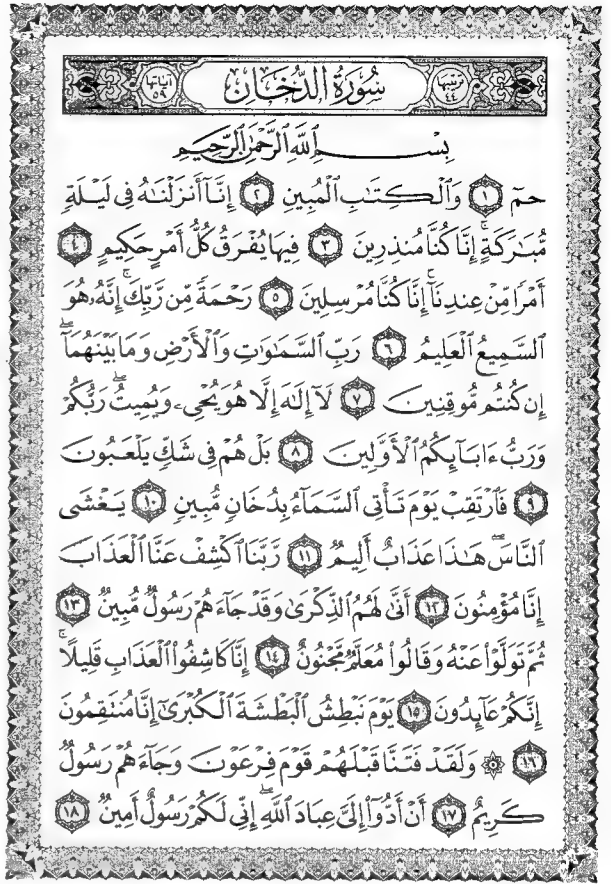 ترتيبها ٤٤ سُورَةُ الدُّخَانِ آياتها ٥٩
بِسْمِ ٱللَّهِ ٱلرَّحْمَٰنِ ٱلرَّحِيمِ
حمٓ ١ وَٱلْكِتَٰبِ ٱلْمُبِينِ ٢ إِنَّآ أَنزَلْنَٰهُ فِى لَيْلَةٍ
مُّبَٰرَكَةٍۚ إِنَّا كُنَّا مُنذِرِينَ ٣ فِيهَا يُفْرَقُ كُلُّ أَمْرٍ حَكِيمٍ ٤
أَمْرًا مِّنْ عِندِنَآۚ إِنَّا كُنَّا مُرْسِلِينَ ٥ رَحْمَةً مِّن رَّبِّكَۚ إِنَّهُۥ هُوَ
ٱلسَّمِيعُ ٱلْعَلِيمُ ٦ رَبِّ ٱلسَّمَٰوَٰتِ وَٱلْأَرْضِ وَمَا بَيْنَهُمَآۖ
إِن كُنتُم مُّوقِنِينَ ٧ لَآ إِلَٰهَ إِلَّا هُوَ يُحْىِۦ وَيُمِيتُۖ رَبُّكُمْ
وَرَبُّ ءَابَآئِكُمُ ٱلْأَوَّلِينَ ٨ بَلْ هُمْ فِى شَكٍّ يَلْعَبُونَ
٩ فَٱرْتَقِبْ يَوْمَ تَأْتِى ٱلسَّمَآءُ بِدُخَانٍ مُّبِينٍ ١٠ يَغْشَى
ٱلنَّاسَۖ هَٰذَا عَذَابٌ أَلِيمٌ ١١ رَّبَّنَا ٱكْشِفْ عَنَّا ٱلْعَذَابَ
إِنَّا مُؤْمِنُونَ ١٢ أَنَّىٰ لَهُمُ ٱلذِّكْرَىٰ وَقَدْ جَآءَهُمْ رَسُولٌ مُّبِينٌ ١٣
ثُمَّ تَوَلَّوْا۟ عَنْهُ وَقَالُوا۟ مُعَلَّمٌ مَّجْنُونٌ ١٤ إِنَّا كَاشِفُوا۟ ٱلْعَذَابِ قَلِيلًاۚ
إِنَّكُمْ عَآئِدُونَ ١٥ يَوْمَ نَبْطِشُ ٱلْبَطْشَةَ ٱلْكُبْرَىٰٓ إِنَّا مُنتَقِمُونَ
١٦ ۞ وَلَقَدْ فَتَنَّا قَبْلَهُمْ قَوْمَ فِرْعَوْنَ وَجَآءَهُمْ رَسُولٌ
كَرِيمٌ ١٧ أَنْ أَدُّوٓا۟ إِلَىَّ عِبَادَ ٱللَّهِۖ إِنِّى لَكُمْ رَسُولٌ أَمِينٌ ١٨